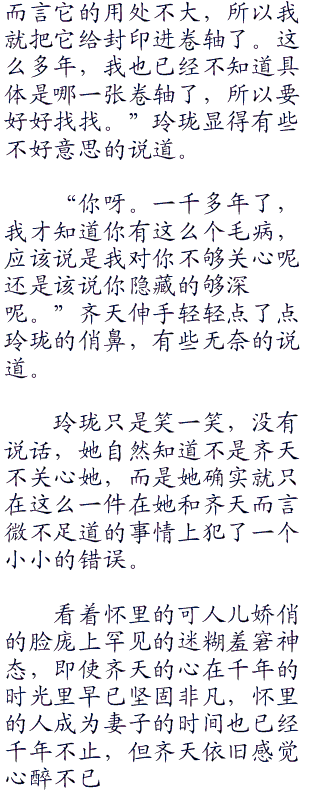 而言它的用处不大，所以我
就把它给封印进卷轴了。这
么多年，我也已经不知道具
体是哪一张卷轴了，所以要
好好找找。”玲珑显得有些
不好意思的说道。
“你呀。一千多年了，
我才知道你有这么个毛病，
应该说是我对你不够关心呢
还是该说你隐藏的够深
呢。”齐天伸手轻轻点了点
玲珑的俏鼻，有些无奈的说
道。
玲珑只是笑一笑，没有
说话，她自然知道不是齐天
不关心她，而是她确实就只
在这么一件在她和齐天而言
微不足道的事情上犯了一个
小小的错误。
看着怀里的可人儿娇俏
的脸庞上罕见的迷糊羞窘神
态，即使齐天的心在千年的
时光里早已坚固非凡，怀里
的人成为妻子的时间也已经
千年不止，但齐天依旧感觉
心醉不已